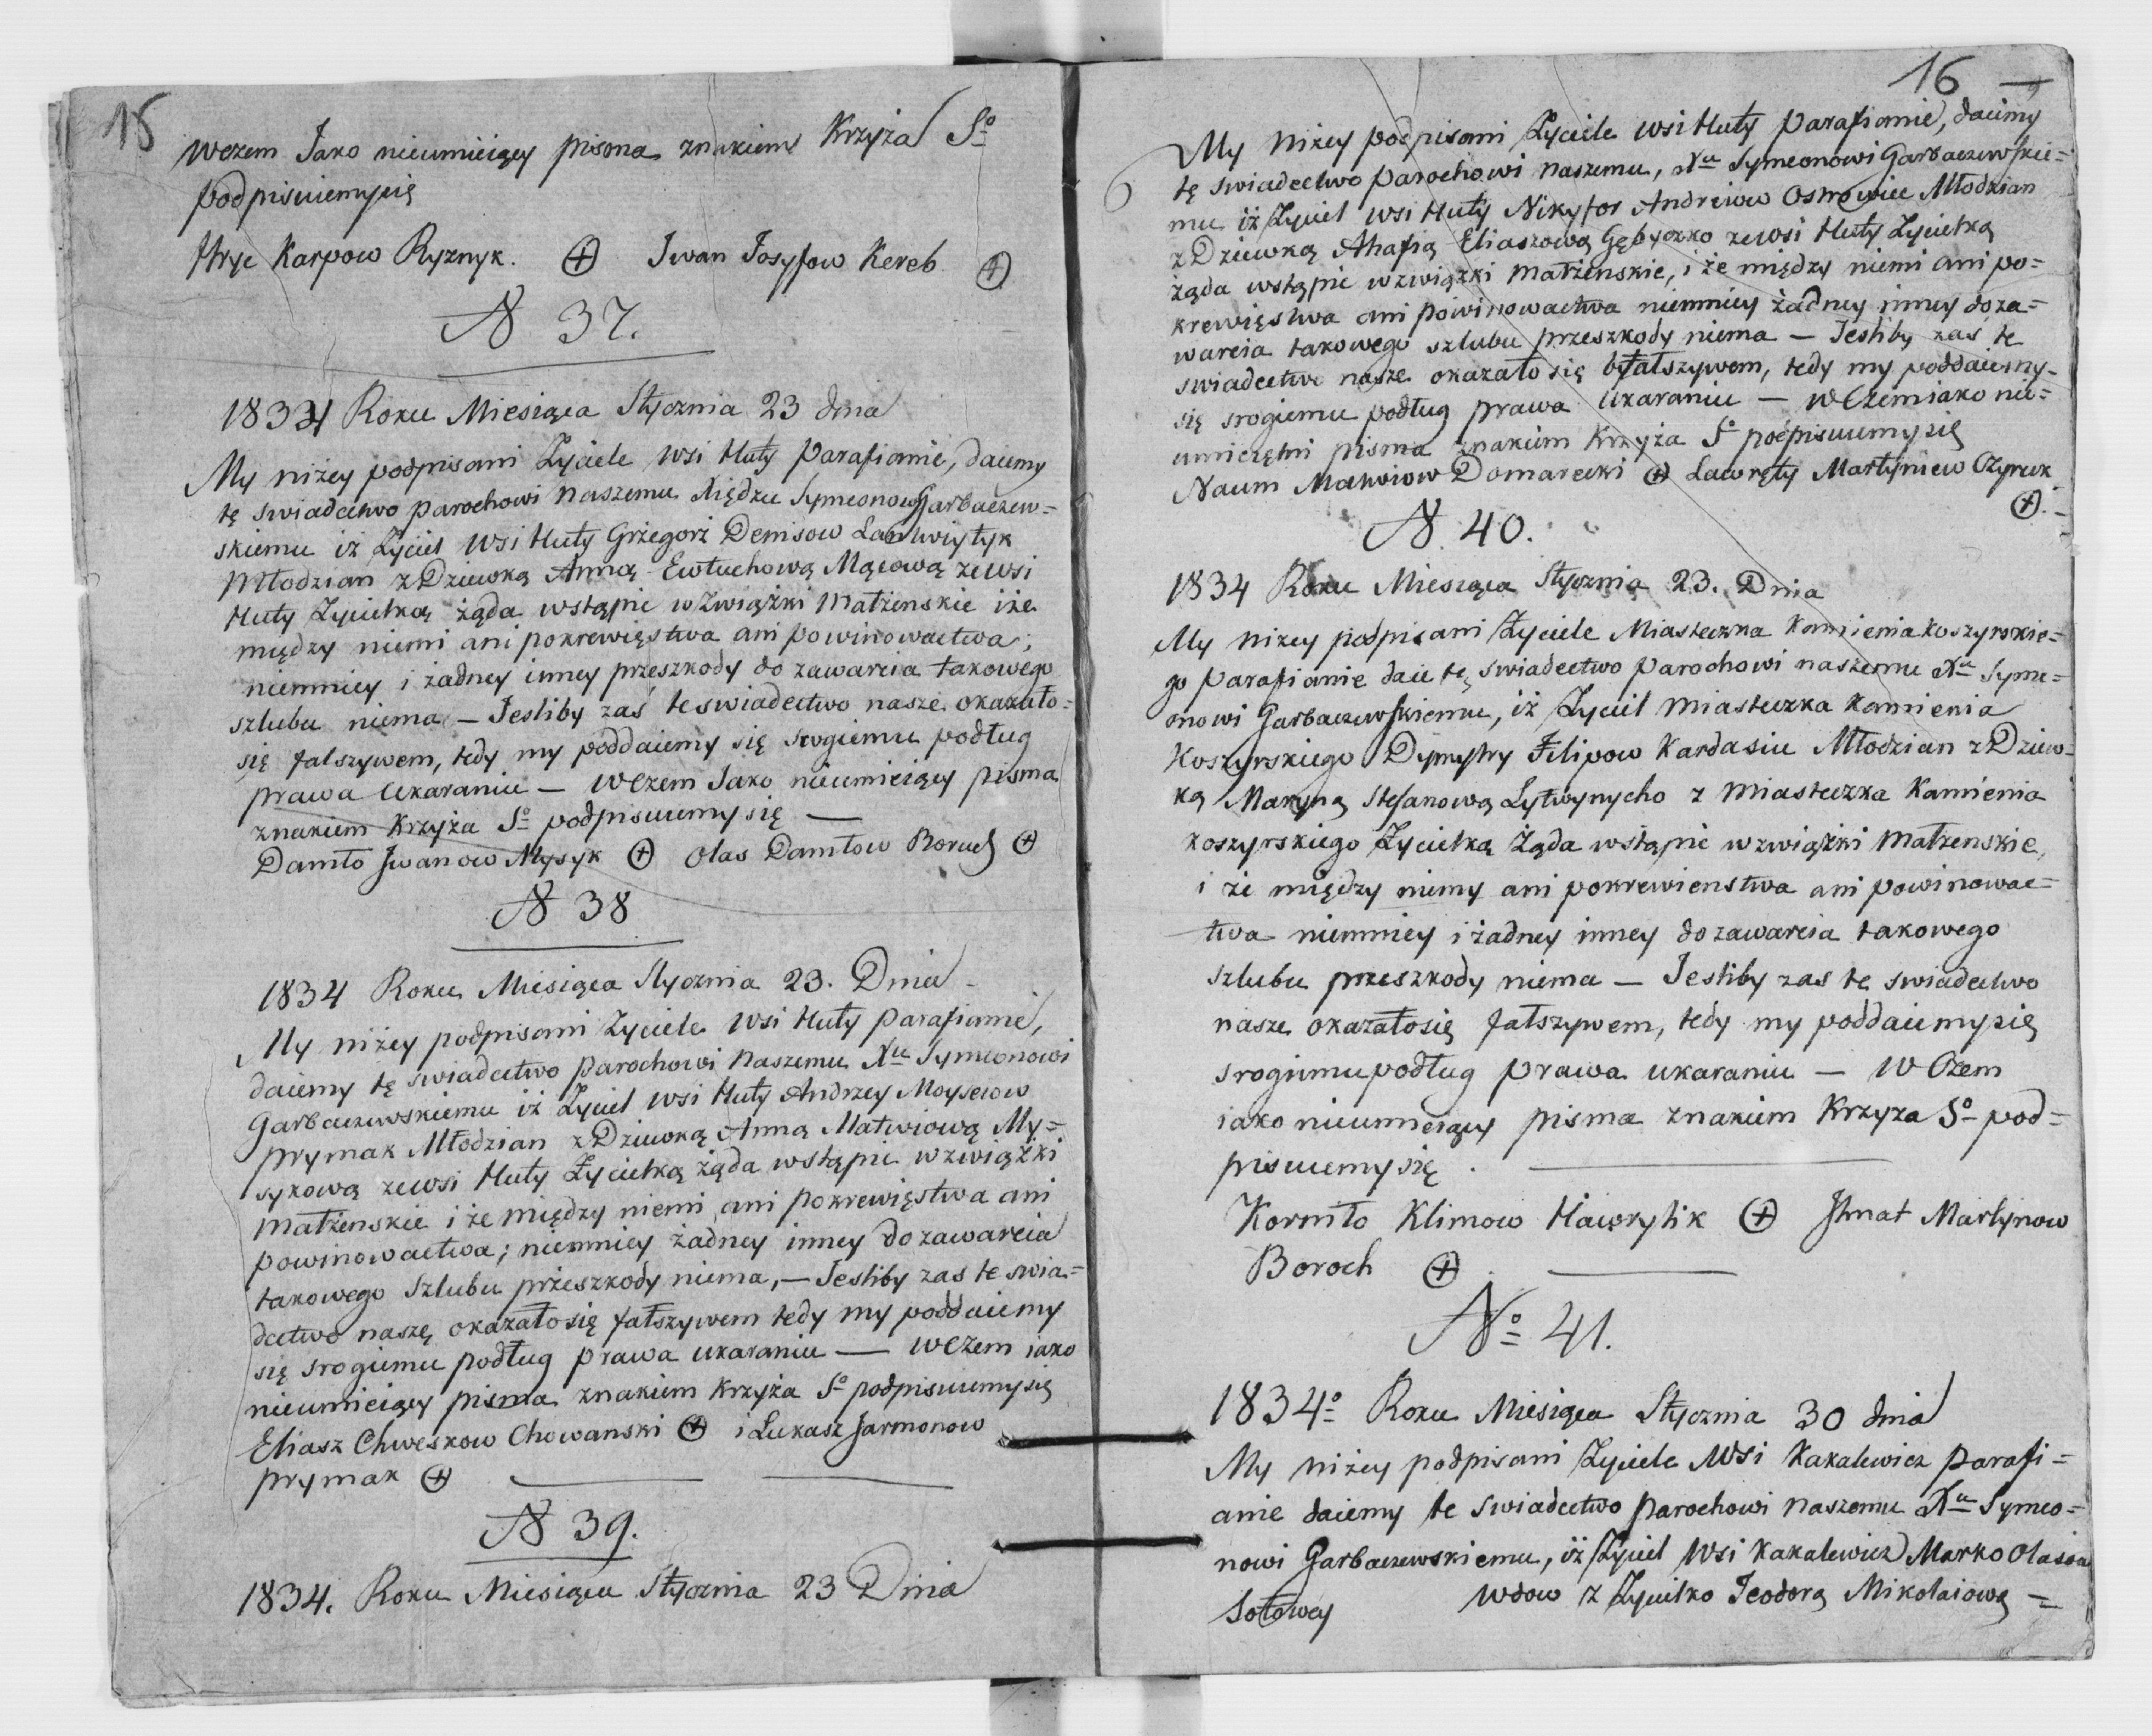 15
wczem Jako nieumieiący pisma znakiem Krzyża So
podpisuiemysię
Hryc Karpow Ryznyk. + Iwan Josyfow Kereb +
N 37.
1834 Roku Miesiąca Stycznia 23 dnia
My niżey podpisani Życiele wsi Huty Parafianie, daiemy
tę swiadectwo Parochowi Naszemu Xiędzu Symeonowi Garbaczew=
skiemu iż Życiel wsi Huty Grzegorz Denisow
Młodzian z Dziewką Anną Ewtuchową Mącową zewsi
Huty Życielką żąda wstąpic w Związki Małżenskie iże
między niemi ani pokrewięstwa ani powinowactwa;
niemniey i żadney inney przeszkody do zawarcia takowego
szlubu niema — Jesliby zaś te swiadectwo nasze okazało=
się falszywem, tedy my poddaiemy się srogiemu podług
prawa Ukaraniu — Wczem Jako nieumieiący pisma
znakiem Krzyża So podpisuiemy się —
Daniło Iwanow Mysyk + Olas Daniłow Boruch +
N 38
1834 Roku Miesiąca Stycznia 23. Dnia
My niżey podpisani Życiele wsi Huty Parafianie,
daiemy tę swiadectwo Parochowi Naszemu Xu Symeonowi
Garbaczewskiemu iż Życiel wsi Huty Andrzey Moyseiow
Prymak Młodzian z Dziewką Anną Matwiową My=
sykową zewsi Huty Życielką żąda wstąpic w związki
Małżenskie i że między niemi, ani pokrewięstwa ani
powinowactwa; niemniey żadney inney do zawarcia
takowego Szlubu przeszkody niema, — Jesliby zas te swia=
dectwo naszę okazało się fałszywem tedy my poddaiemy
się srogiemu podług prawa ukaraniu — wczem iako
nieumieiący pisma znakiem Krzyża So podpisuiemysię
Eliasz Chweskow Chowanski + i Łukasz Jarmonow
Prymak +
N 39.
1834. Roku Miesiąca Stycznia 23 Dnia
16 —
My niżey podpisani Życiele wsi Huty Parafianie, daiemy
tę swiadectwo Parochowi Naszemu, Xu Symeonowi Garbaczewskie=
mu iż Życiel wsi Huty Nikyfor Andreiow Ostrowiec Młodzian
z Dziewką Ahafią Eliaszową Gębyczko zewsi Huty Życielką
żąda wstąpic w związki małżenskie, i że między niemi ani po=
krewięstwa ani powinowactwa niemniey żadney inney do za=
warcia takowego szlubu przeszkody niema — Jesliby zaś te
swiadectwo nasze okazało się fałszywem, tedy my poddaiemy-
się srogiemu podług prawa Ukaraniu — w Czem iako nie=
umieiętni pisma znakiem Krzyża So podpisuiemysię
Naum Matwiow Domarecki + Lawręty Martyniew Czyruk
+
N 40.
1834 Roku Miesiąca Stycznia 23. Dnia
My niżey podpisani Życiele Miasteczka Kamienia koszyrskie=
go Parafianie daie tę swiadectwo Parochowi naszemu Xu Syme=
onowi Garbaczewskiemu, iż Życiel Miasteczka Kamienia
Koszyrskiego Dymytry Filipow Kardasiu Młodzian z Dziew=
ką Maryną Stefanową Lytwynycho z Miasteczka Kamienia
koszyrskiego Życielką Żąda wstąpic w związki Małżenskie,
i że między niemy ani pokrewienstwa ani powinowac=
twa niemniey i żadney inney do zawarcia takowego
szlubu przeszkody niema — Jesliby zas te swiadectwo
nasze okazałosię fałszywem, tedy my poddaiemysię
srogiemu podług prawa ukaraniu — W Czem
iako nieumieiący pisma znakiem Krzyza So pod=
pisuiemy się.
Korniło Klimow Hawrylik + Ihnat Martynow
Boroch +
No 41.
1834o Roku Miesiąca Stycznia 30 dnia
My niżey podpisani Życiele Wsi Kakalewicz Parafi=
anie daiemy te swiadectwo Parochowi naszemu Xu Symeo=
nowi Garbaczewskiemu, iż Życiel Wsi Kakalewicz Marko
Sołowey wdow z Życielko Teodorą Mikolaiową =